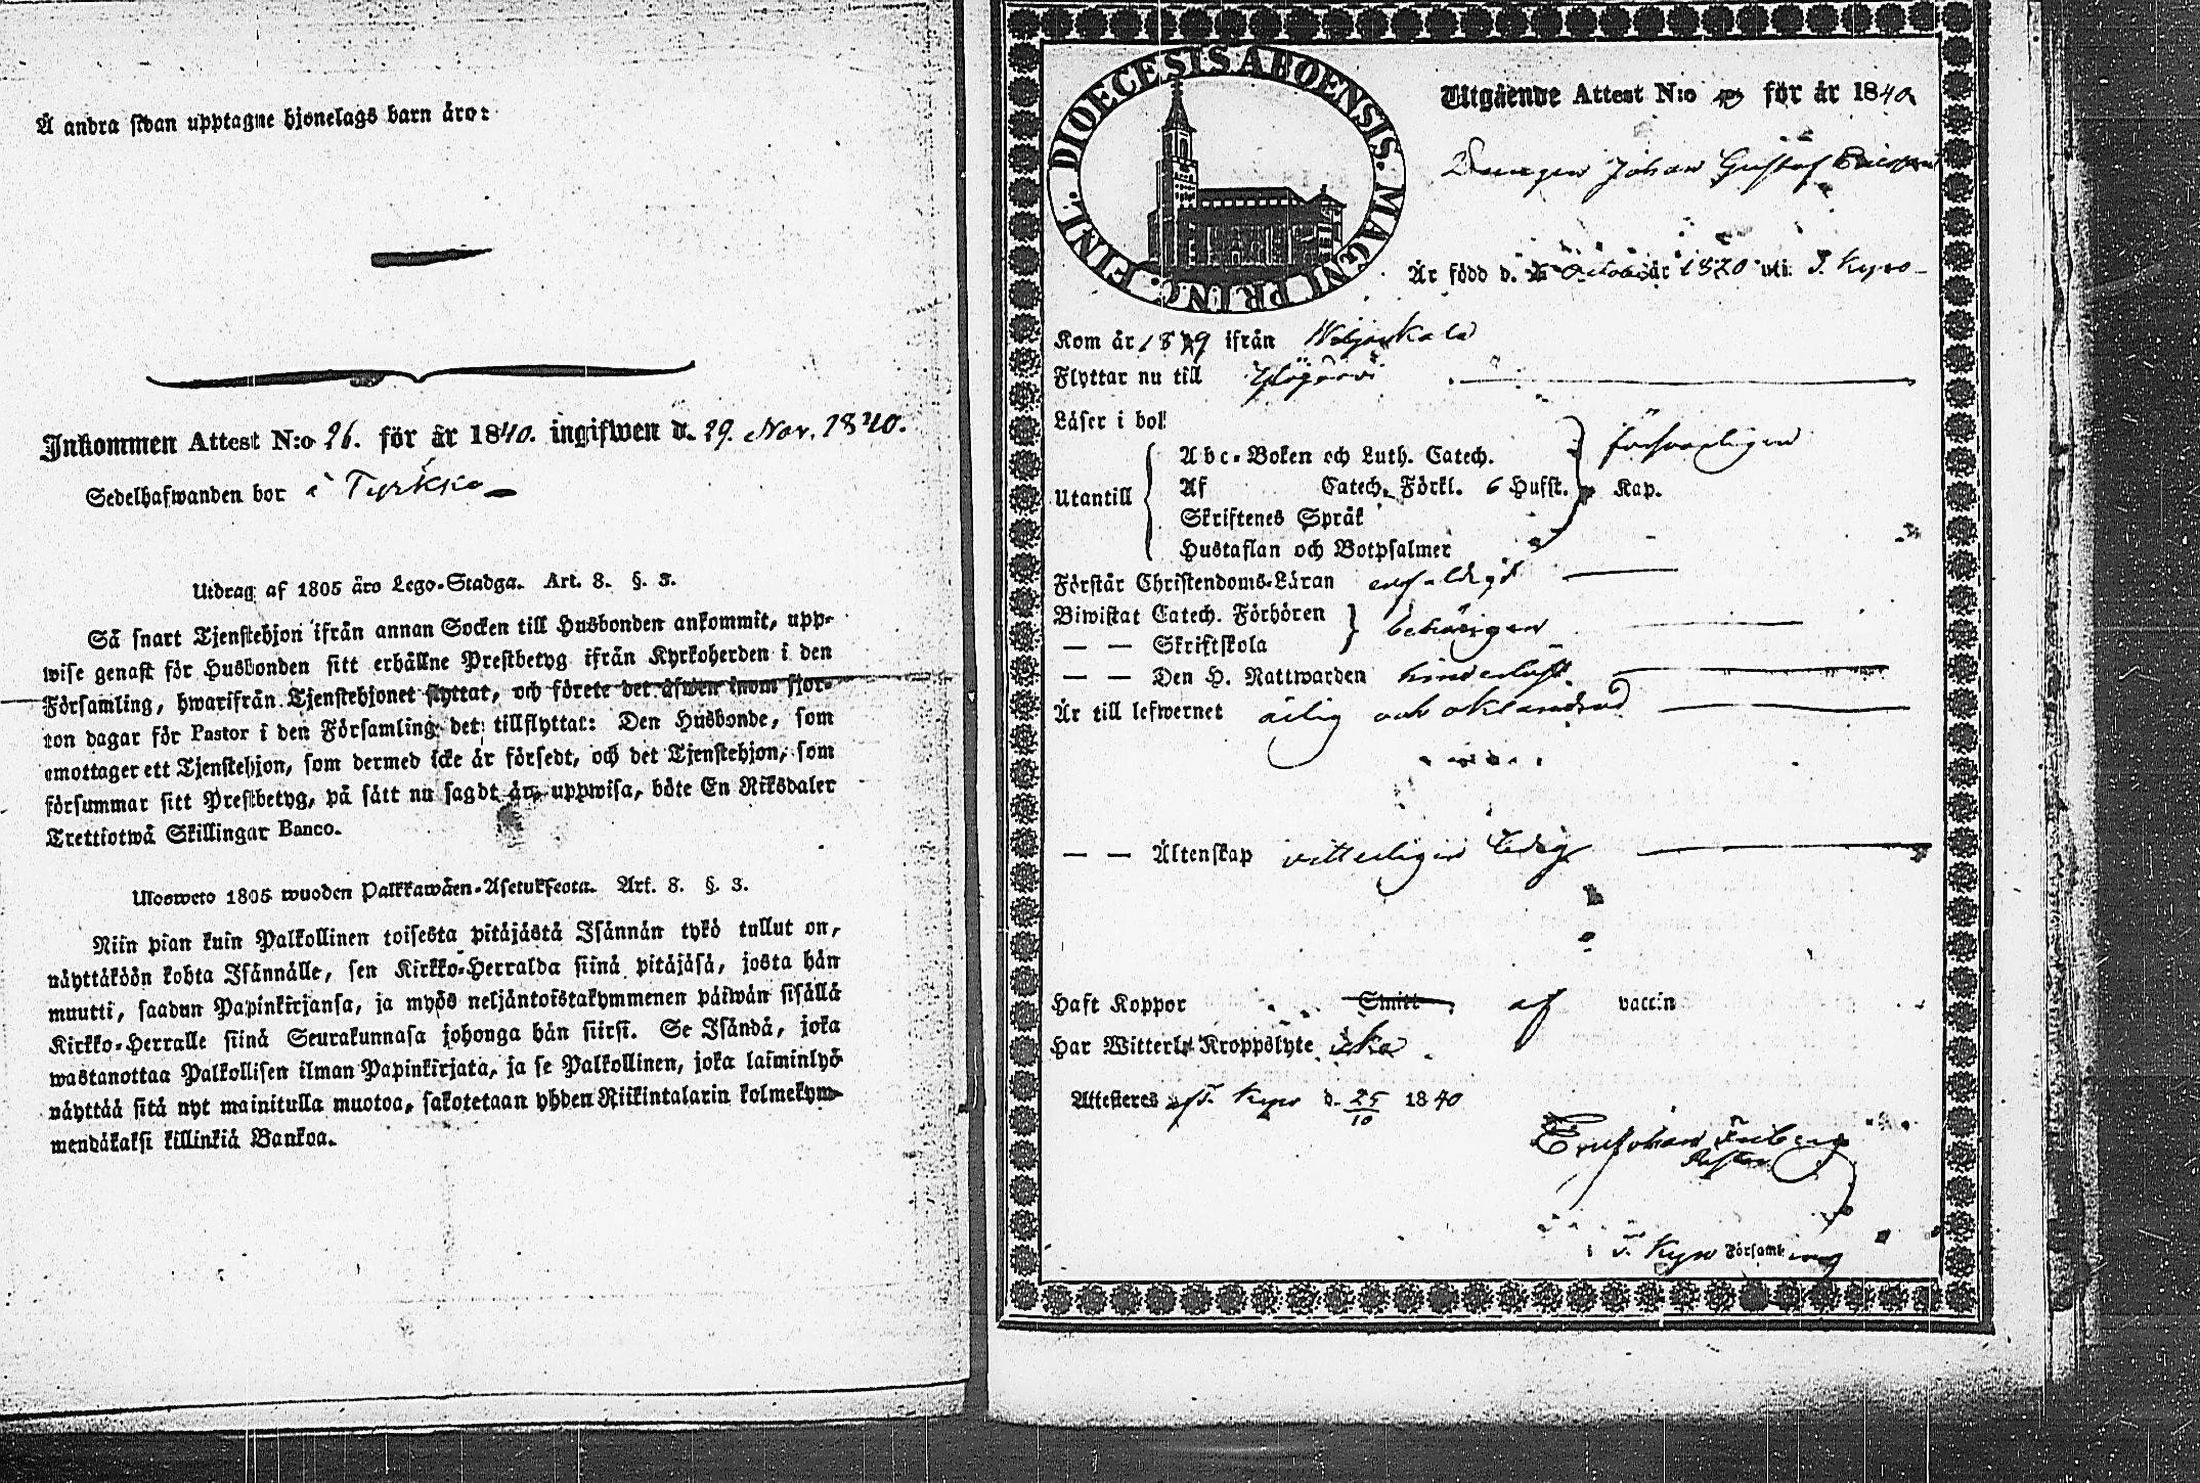 Å andra sidan upptagne hjonelags barn äro:
Inkommen Attest N:o 26. för år 1840. ingifwen d. 29. Nov. 1840.
Sedelhafwanden bor i Tyrkkö
Utdrag af 1805 åro Lego-Stadga. Art. 8. §. 3.
Så snart Tjenstehjon ifrån annan Socken till Husbonden ankommit, upp-
wise genast för Husbonden sitt erhållne Prestbetyg ifrån Kyrkoherden i den
Församling, hwarifrån Tjenstehjonet flyttat, och förete det åfwen inom fjor-
ton dagar för Pastor i den Församling det tillflyttat: Den Husbonde, som
emottager ett Tjenstehjon, som dermed icke är försedt, och det Tjenstehjon, som
försummar sitt Prestbetyg, på sätt nu sagdt är, uppwisa, böte En Riksdaler
Trettiotwå Skillingar Banco.
Ulosweto 1805 wuoden Palkkawäen-Asetuksesta. Art. 8. §. 3.
Niin pian kuin Palkollinen toisesta pitäjästä Isännän tykö tullut on,
näyttäköön kohta Isännälle, sen Kirkko-Herralda siinä pitäjäsä, josta hän
muutti, saadun Papinkirjansa, ja myös neljäntoistakymmenen päiwän sisällä
Kirkko-Herralle siinä Seurakunnasa johonga hän siirsi. Se Isändä, joka
wastanottaa Palkollisen ilman Papinkirjata, ja se Palkollinen, joka laiminlyö
näyttää sitä nyt mainitulla muotoa, sakotetaan yhden Riikintalarin kolmekym-
mendäkaksi killinkiä Bankoa.
DIOECESIS ABOENSIS. MAGNI PRINC. FINL.
Utgående Attest N:o för år 1840
Drengen Johan Gustaf Ericsson
Är född d. October år 1820 uti T. Kyro
Kom år 1839 ifrån Wiljakkala
Flyttar nu till Ylöjärvi
Läser i bok
Abc-Boken och Luth. Catech. försvarligen
Utantill Af Catech. Förkl. 6 Hufst. Kap.
Skriftenes Språk
Hustaflan och Botpsalmer
Förstår Christendoms-Läran enfaldigt
Biwistat Catech. Förhören behörigen
— — Skriftskola
— — Den H. Nattwarden hinderlöst.
Är till lefwernet ärlig och oklandrad
— — Äktenskap vitterligen ledig
Haft Koppor Smitt af vaccin
Har Witterl. Kroppslyte Icke
Attesteres af T. Kyro d. 25/10 1840
Johan Friberg
Pastor
i T. Kyro Församling